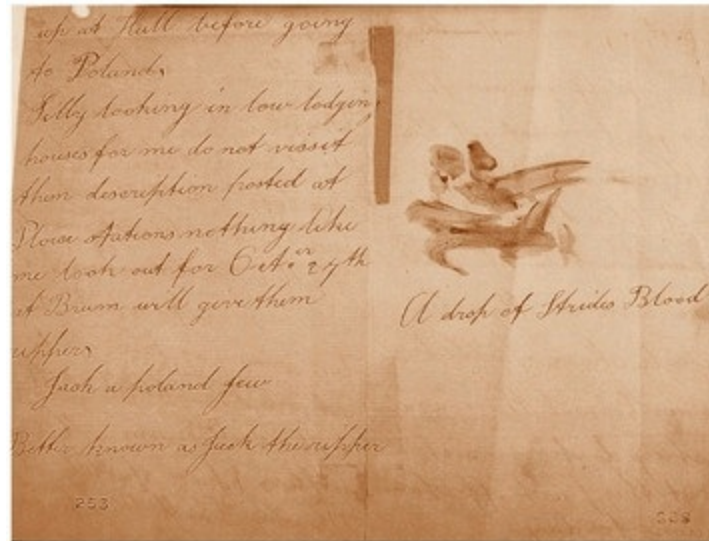 up at Hull before going
to Poland.
Silly looking in low lodgin
houses for me do not vissit
them description posted at
Plice stations nothing like
me look out for Oct.er 27th
at Brum will give them
ripper
Jack a poland jew
Better known as Jack the ripper
253
A drop of Strides Blood